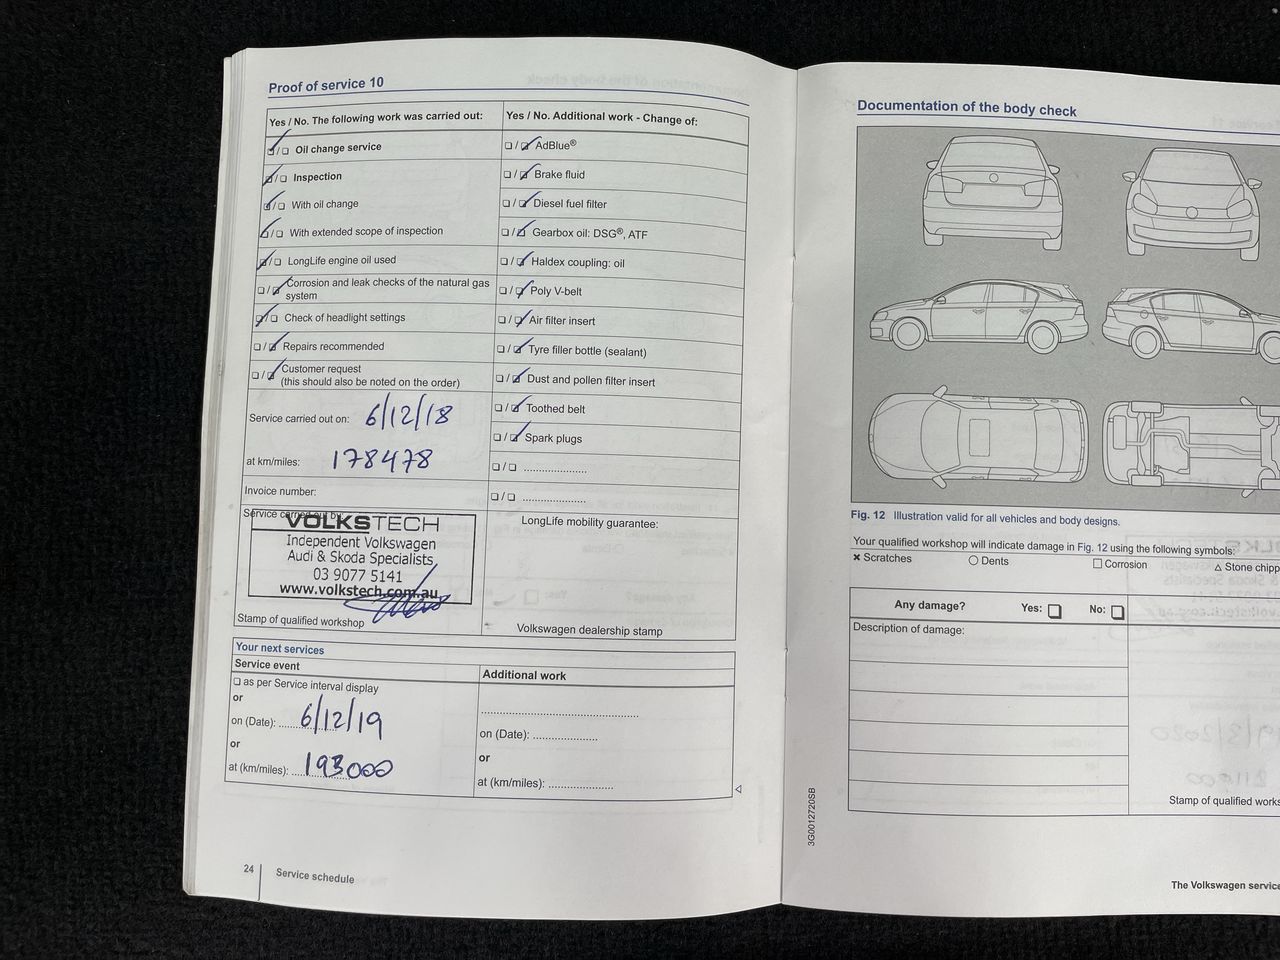 Proof of service 10
Yes / No. The following work was carried out:
Oil change service
Inspection
With oil change
With extended scope of inspection
LongLife engine oil used
Corrosion and leak checks of the natural gas
system
Check of headlight settings
Repairs recommended
Customer request
(this should also be noted on the order)
Service carried out on: 6/12/18
at km/miles: 178478
Invoice number:
Service carried out by:
VOLKSTECH
Independent Volkswagen
Audi & Skoda Specialists
03 9077 5141
www.volkstech.com.au
Stamp of qualified workshop
Yes / No. Additional work - Change of:
AdBlue®
Brake fluid
Diesel fuel filter
Gearbox oil: DSG®, ATF
Haldex coupling: oil
Poly V-belt
Air filter insert
Tyre filler bottle (sealant)
Dust and pollen filter insert
Toothed belt
Spark plugs
LongLife mobility guarantee:
Volkswagen dealership stamp
Your next services
Service event
as per Service interval display
or
on (Date): 6/12/19
or
at (km/miles): 193000
Additional work
on (Date):
or
at (km/miles):
24 Service schedule
Documentation of the body check
Fig. 12 Illustration valid for all vehicles and body designs.
Your qualified workshop will indicate damage in Fig. 12 using the following symbols:
Scratches Dents Corrosion Stone chipp
Any damage? Yes: No:
Description of damage:
Stamp of qualified works
3G0012720SB
The Volkswagen service